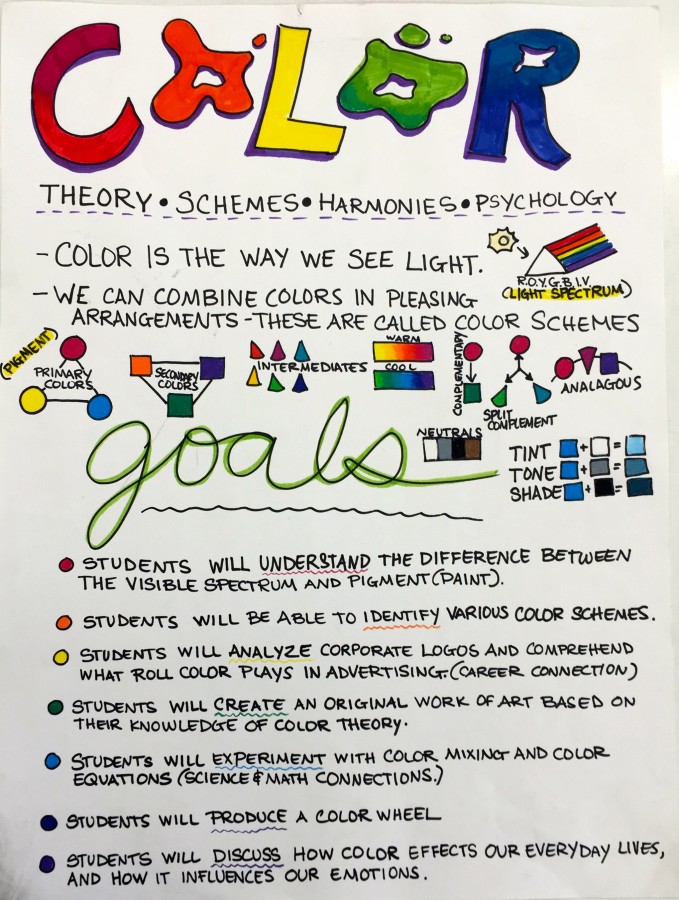 COLOR
THEORY • SCHEMES • HARMONIES • PSYCHOLOGY
- COLOR IS THE WAY WE SEE LIGHT.
R.O.Y.G.B.I.V.
(LIGHT SPECTRUM)
- WE CAN COMBINE COLORS IN PLEASING
ARRANGEMENTS - THESE ARE CALLED COLOR SCHEMES
(PIGMENT)
PRIMARY
COLORS
SECONDARY
COLORS
INTERMEDIATES
WARM
COOL
COMPLEMENTARY
SPLIT
COMPLEMENT
ANALAGOUS
goals
NEUTRALS
TINT + =
TONE + =
SHADE + =
STUDENTS WILL UNDERSTAND THE DIFFERENCE BETWEEN
THE VISIBLE SPECTRUM AND PIGMENT (PAINT).
STUDENTS WILL BE ABLE TO IDENTIFY VARIOUS COLOR SCHEMES.
STUDENTS WILL ANALYZE CORPORATE LOGOS AND COMPREHEND
WHAT ROLL COLOR PLAYS IN ADVERTISING. (CAREER CONNECTION)
STUDENTS WILL CREATE AN ORIGINAL WORK OF ART BASED ON
THEIR KNOWLEDGE OF COLOR THEORY.
STUDENTS WILL EXPERIMENT WITH COLOR MIXING AND COLOR
EQUATIONS (SCIENCE & MATH CONNECTIONS.)
STUDENTS WILL PRODUCE A COLOR WHEEL
STUDENTS WILL DISCUSS HOW COLOR EFFECTS OUR EVERYDAY LIVES,
AND HOW IT INFLUENCES OUR EMOTIONS.